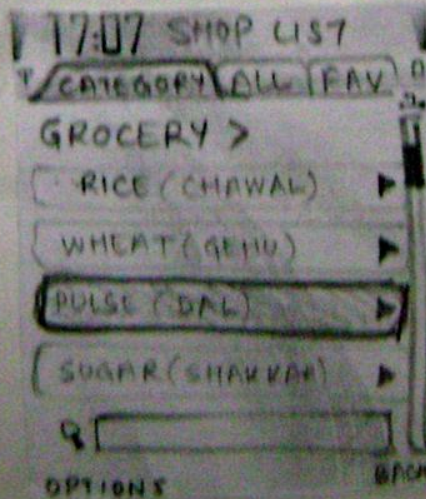 17:07 SHOP LIST
CATEGORY ALL FAV
GROCERY >
RICE (CHAWAL)
WHEAT (GEHU)
PULSE (DAL)
SUGAR (SHAKKAR)
OPTIONS BACK